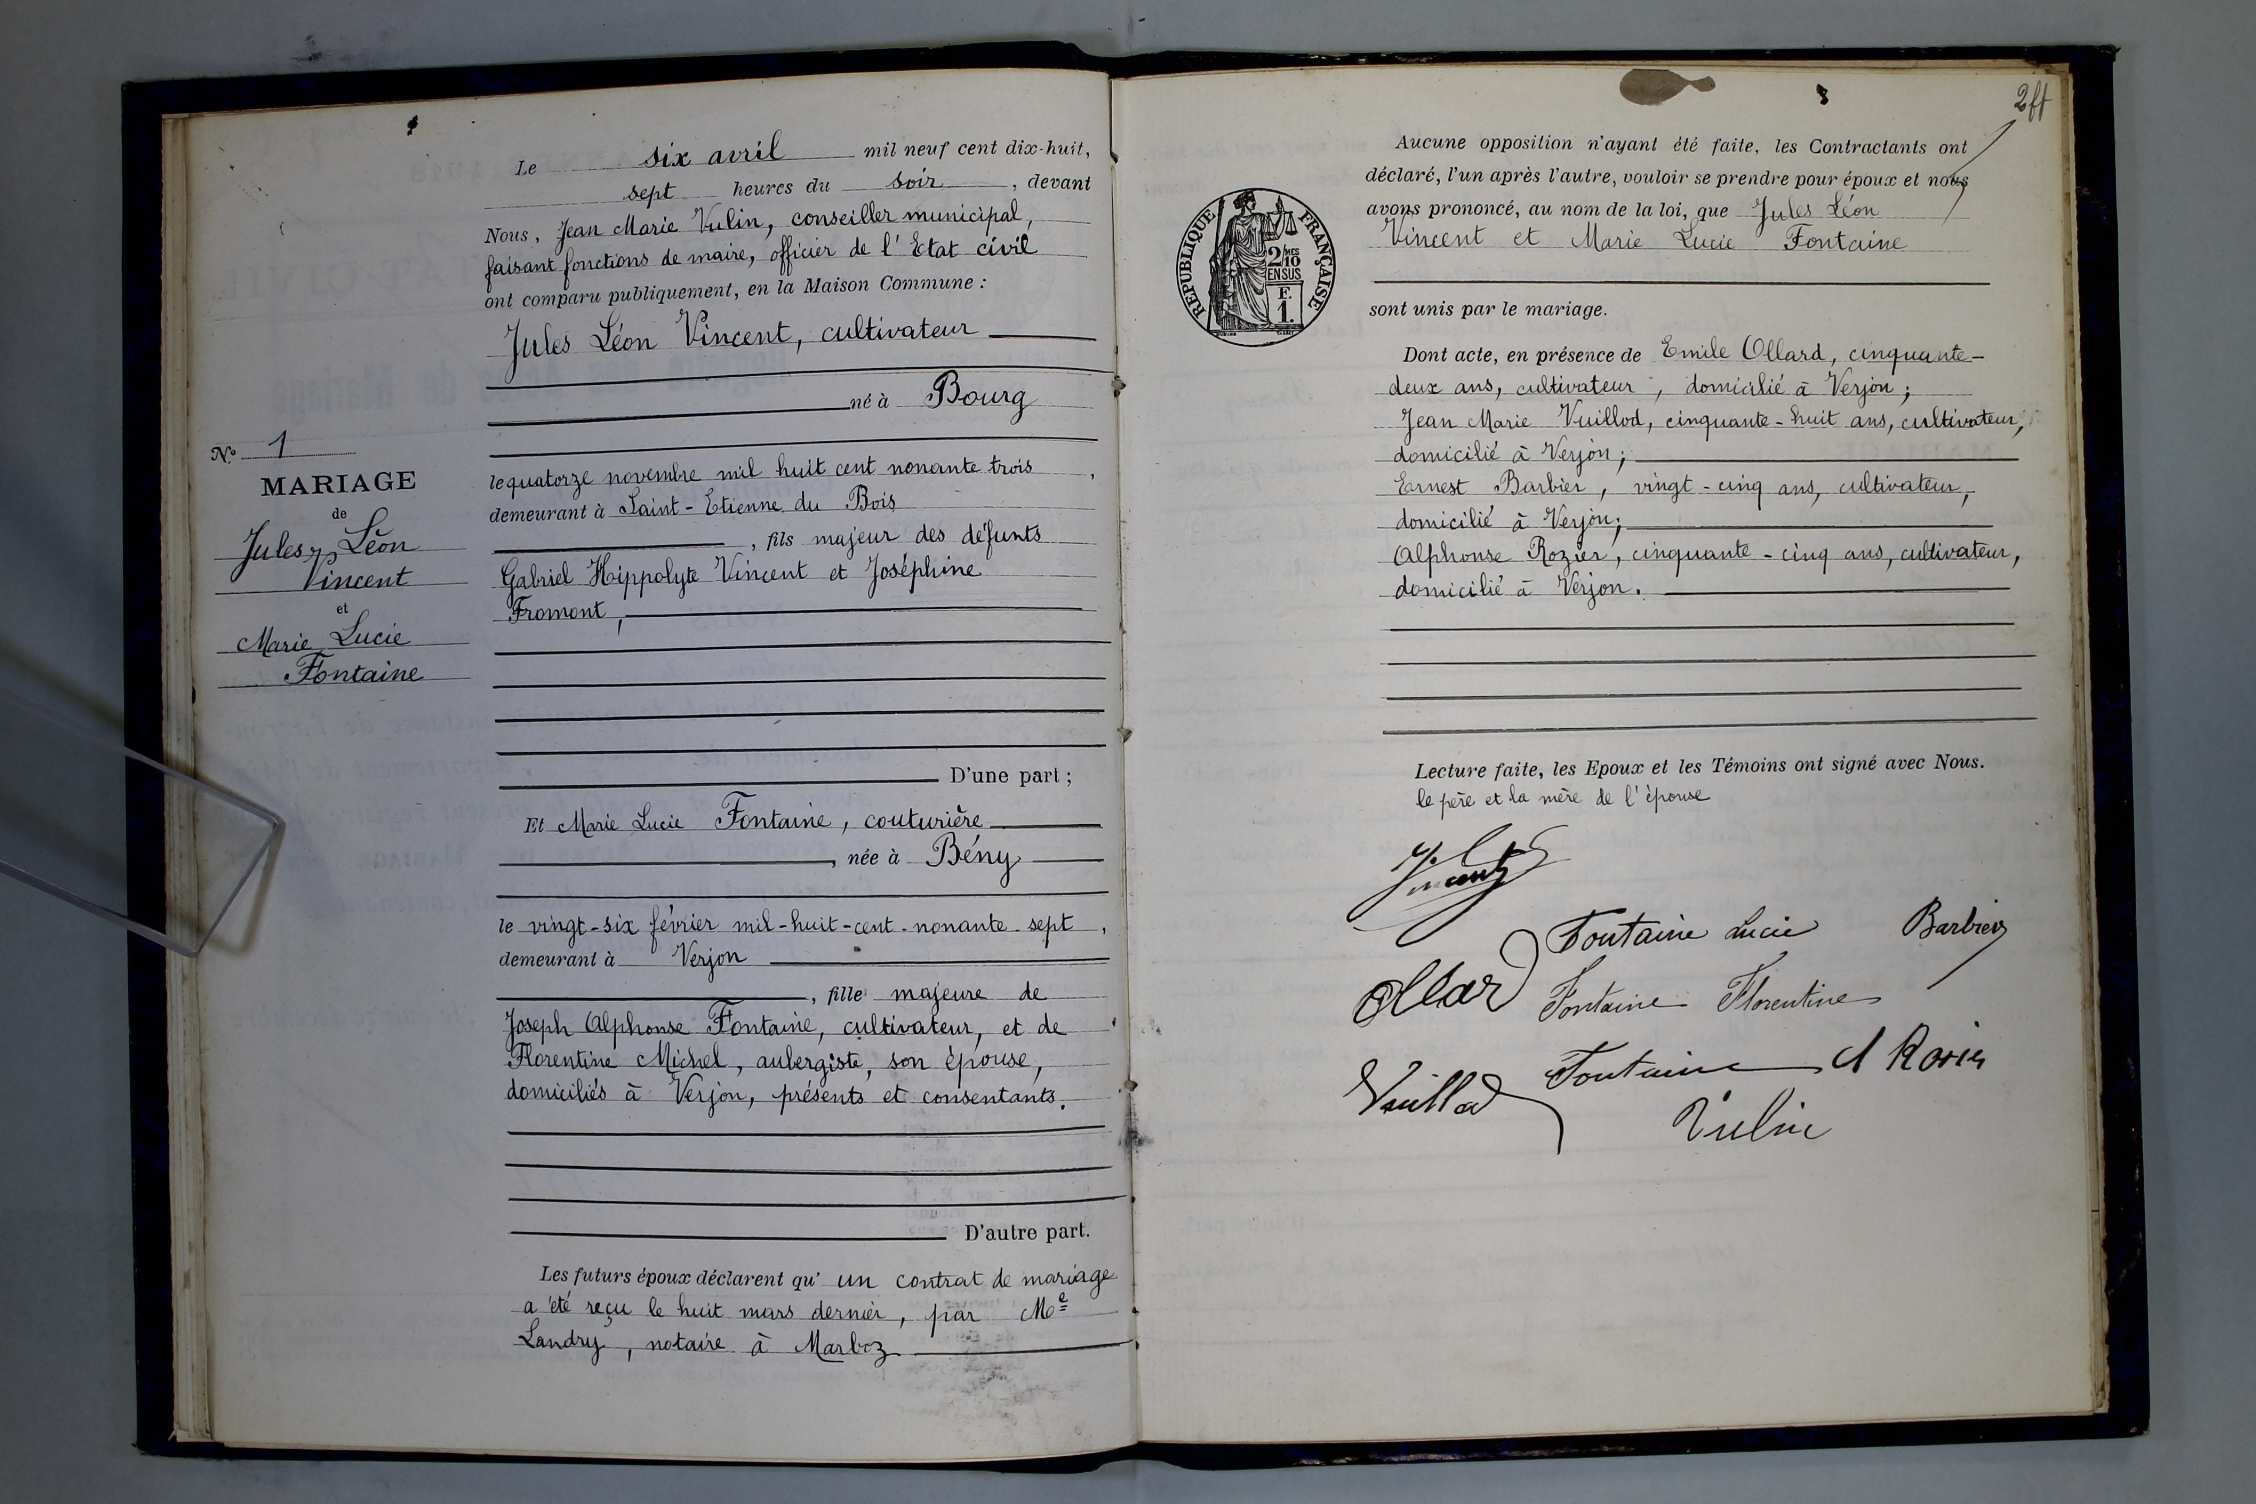 Le six avril mil neuf cent dix-huit,
sept heures du soir, devant
Nous, Jean Marie Vulin, conseiller municipal,
faisant fonctions de maire, officier de l'Etat civil
ont comparu publiquement, en la Maison Commune :
Jules Léon Vincent, cultivateur
né à Bourg
le quatorze novembre mil huit cent nonante trois,
demeurant à Saint-Etienne du Bois
, fils majeur des défunts
Gabriel Hippolyte Vincent et Joséphine
Fromont,
D'une part ;
Et Marie Lucie Fontaine, couturière
, née à Bény
le vingt-six février mil-huit-cent-nonante-sept,
demeurant à Verjon
, fille majeure de
Joseph Alphonse Fontaine, cultivateur, et de
Florentine Michel, aubergiste, son épouse,
domiciliés à Verjon, présents et consentants.
D'autre part.
Les futurs époux déclarent qu'un contrat de mariage
a été reçu le huit mars dernier, par Me
Landry, notaire à Marboz
N° 1
MARIAGE
de
Jules Léon
Vincent
et
Marie Lucie
Fontaine
Aucune opposition n'ayant été faite, les Contractants ont
déclaré, l'un après l'autre, vouloir se prendre pour époux et nous
avons prononcé, au nom de la loi, que Jules Léon
Vincent et Marie Lucie Fontaine
sont unis par le mariage.
REPUBLIQUE FRANÇAISE
2/10
MES
EN SUS
F.
1.
Dont acte, en présence de Emile Ollard, cinquante-
deux ans, cultivateur, domicilié à Verjon ;
Jean Marie Vuillod, cinquante-huit ans, cultivateur,
domicilié à Verjon ;
Ernest Barbier, vingt-cinq ans, cultivateur,
domicilié à Verjon ;
Alphonse Rozier, cinquante-cinq ans, cultivateur,
domicilié à Verjon.
Lecture faite, les Epoux et les Témoins ont signé avec Nous.
le père et la mère de l'épouse
Vincent
Fontaine Lucie Barbier
Ollard Fontaine Florentine
Vuillod Fontaine A Rozier
Vulin